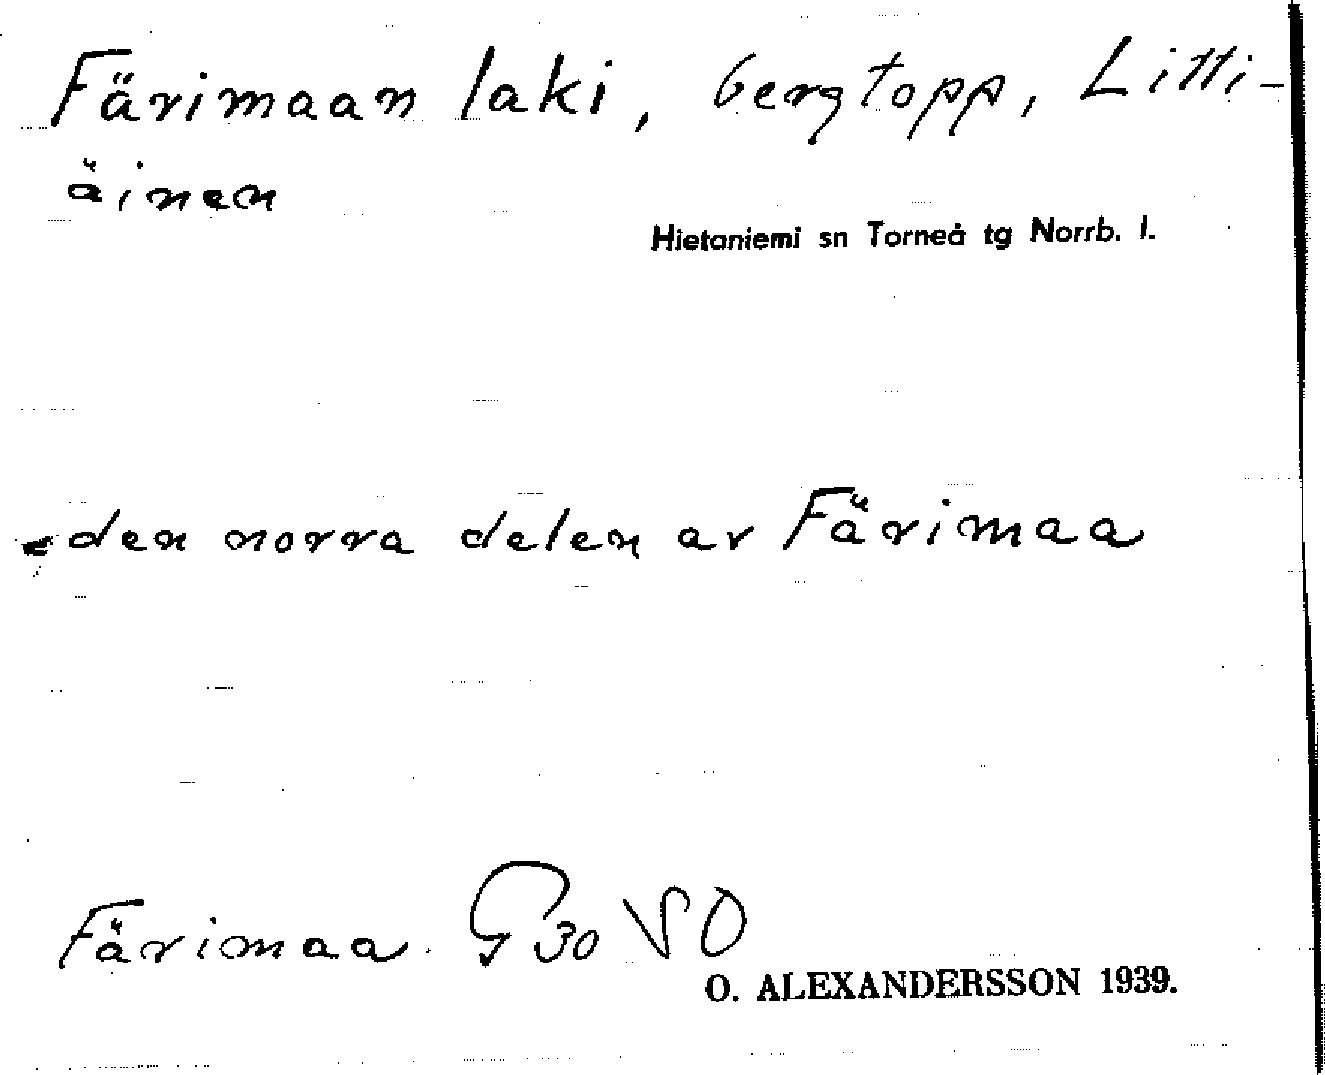 Färimaan laki, bergtopp, Litti-
äinen
Hietaniemi sn Torneå tg Norrb. l.
den norra delen av Färimaa
Färimaa. G 30 VO
O. ALEXANDERSSON 1939.